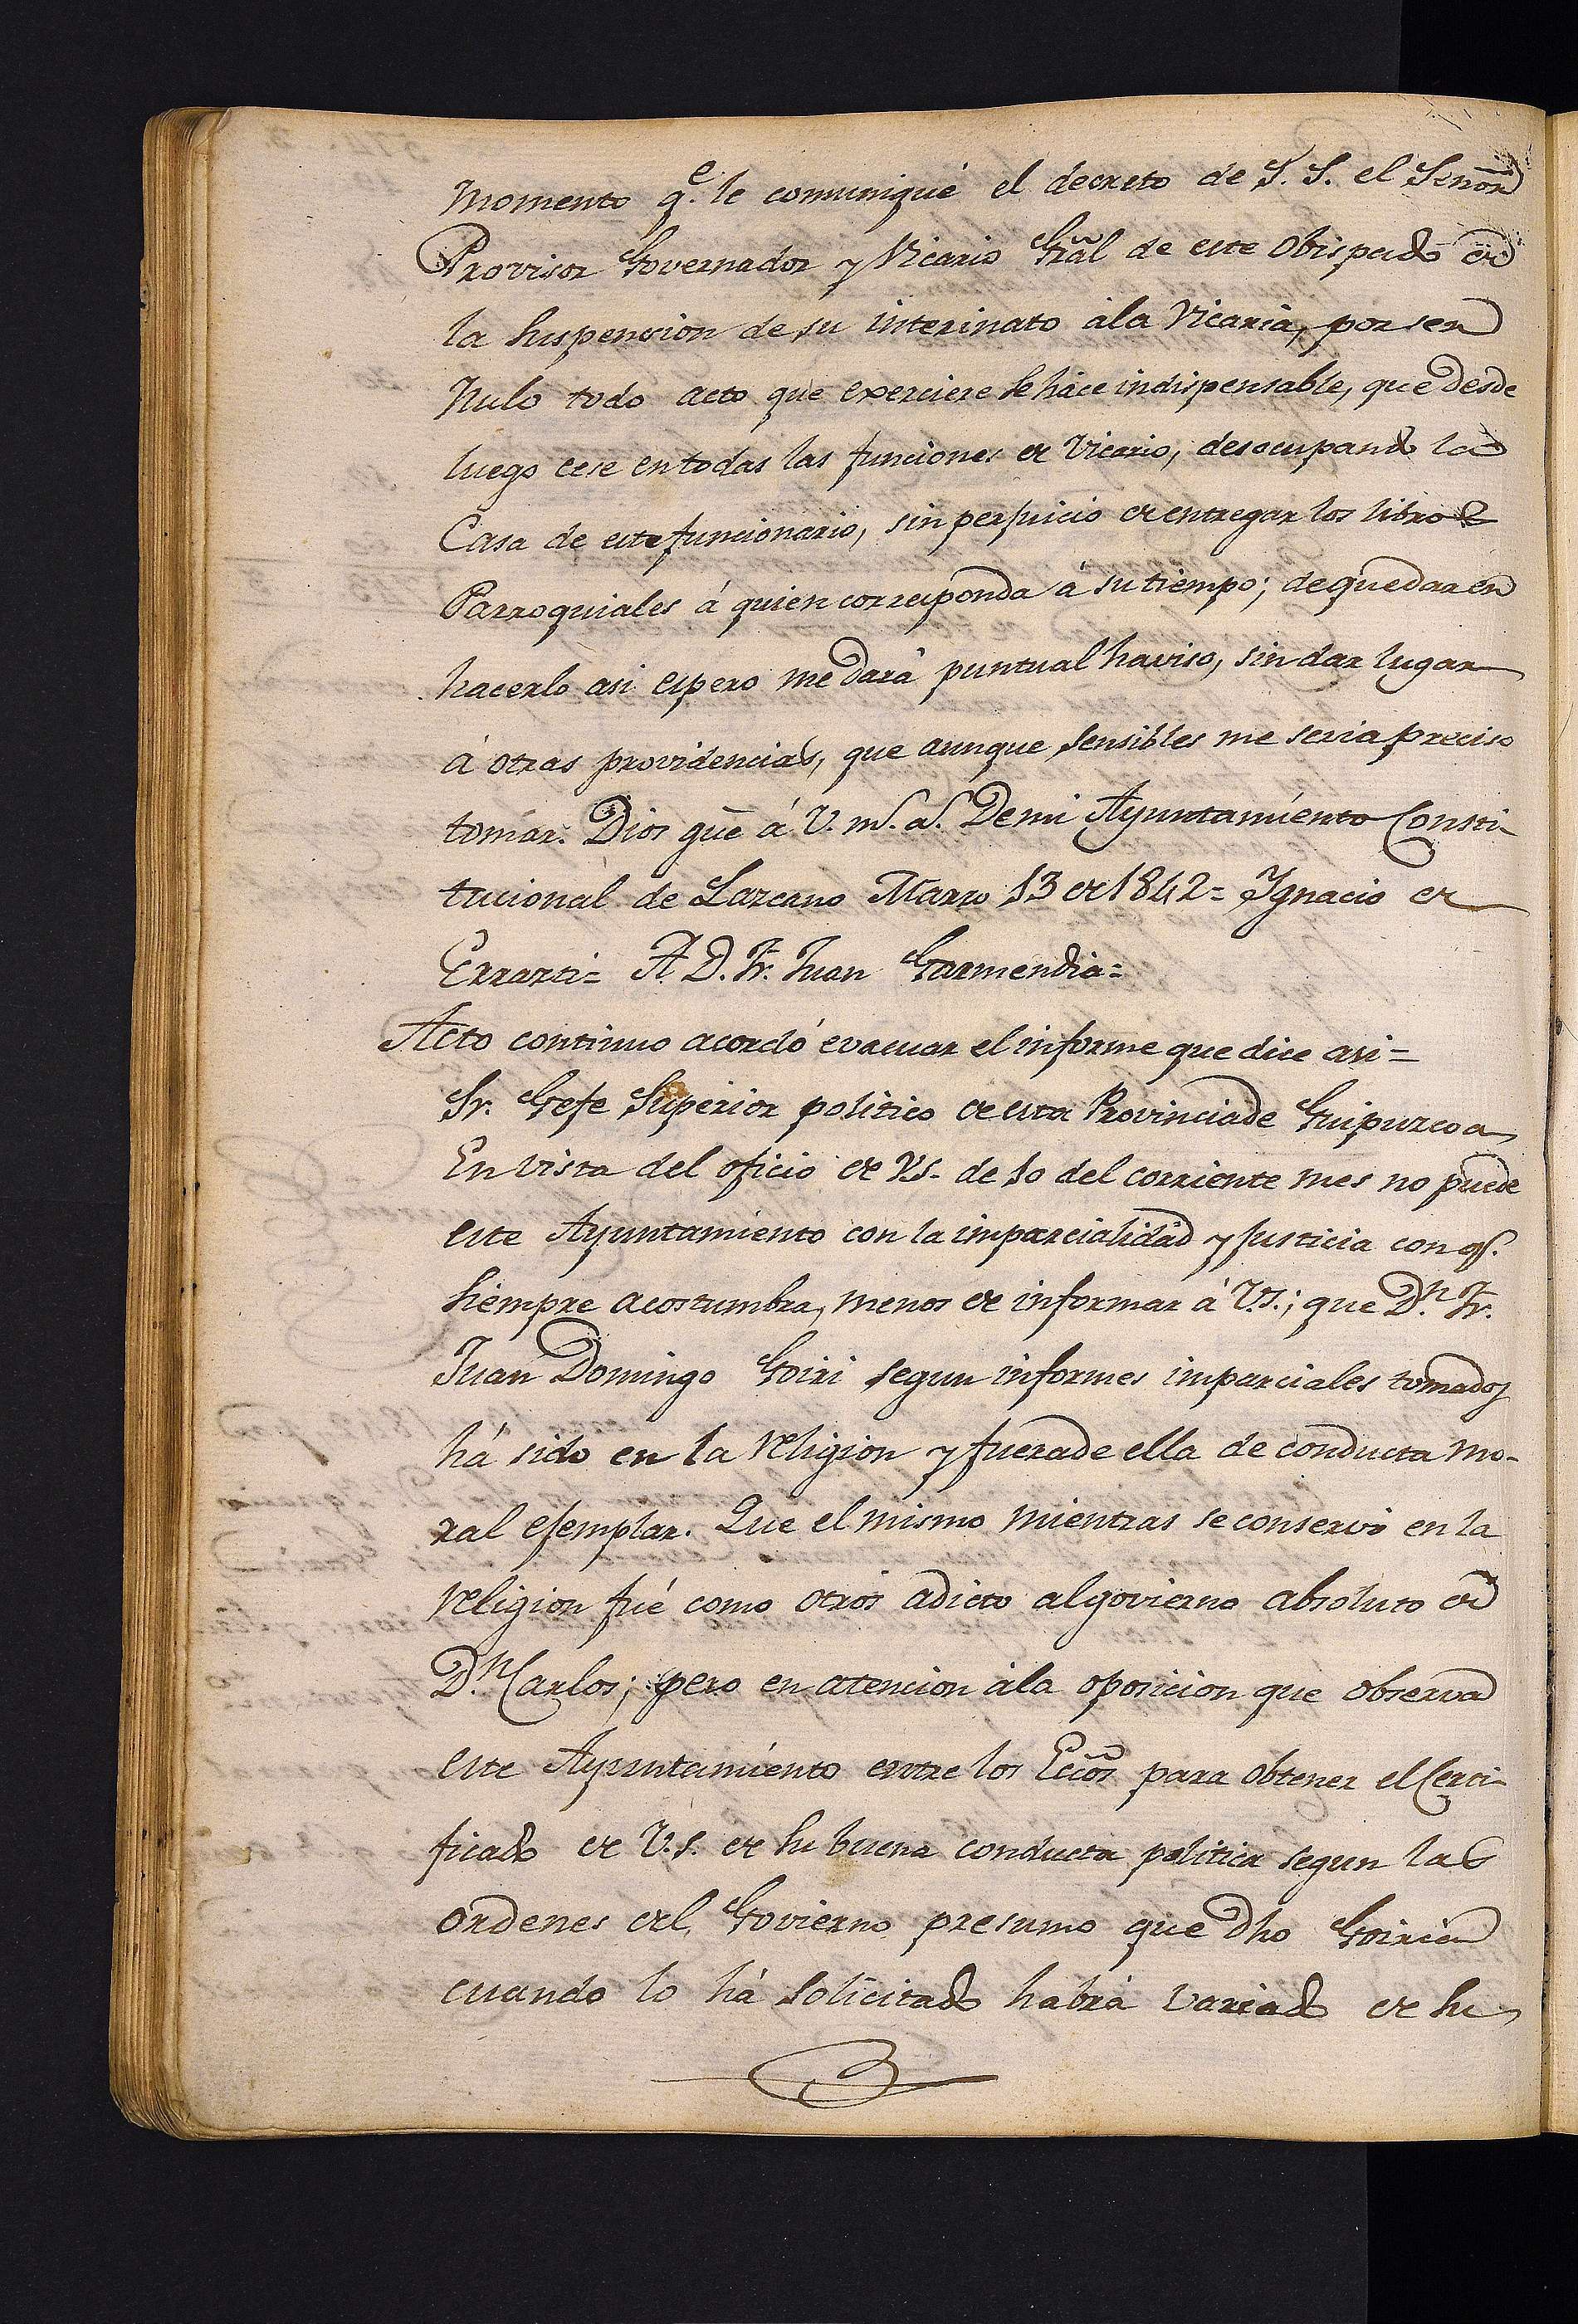 Momento q.e le comuniqué el decreto de S. S. el Señor
Provisor Governador y Vicario Grãl de este Obispado de
la suspension de su interinato á la Vicaria, por ser
Nulo todo acto que exerciere se háce indispensable, que desde
luego cese en todas las funciones de Vicario, desocupando la
Casa de este funcionario, sin perjuicio de entregar los libros
Parroquiales á quien corresponda á su tiempo; de quedar en
hacerlo asi espero me dará puntual haviso, sin dar lugar
á otras providencias, que aunque sensibles me seria preciso
tomar. Dios gũe á V. m.s a.s De mi Ayuntamiento Consti-
tucional de Lazcano Marzo 13 de 1842= Ignacio de
Errazti= A D. Fr. Juan Garmendia=
Acto continuo acordó evacuar el informe que dice asi=
Sr. Gefe Superior politico de esta Provincia de Guipuzcoa
En vista del oficio de V.S. de 10 del corriente mes no puede
este Ayuntamiento con la imparcialidad y justicia con q.e
siempre acostumbra, menos de informar á V.S.; que D.n Fr.
Juan Domingo Goiri segun informes imparciales tomados
há sido en la religion y fuera de ella de conducta mo-
ral ejemplar. Que el mismo mientras se conservó en la
religion fué como otros adicto al govierno absoluto de
D.n Carlos; pero en atencion á la oposicion que observa
este Ayuntamiento entre los Eccõs para obtener el Certi-
ficado de V.S. de su buena conducta politica segun las
ordenes del Govierno presumo que dho Goiri
cuando lo há solicitado habrá variado de su